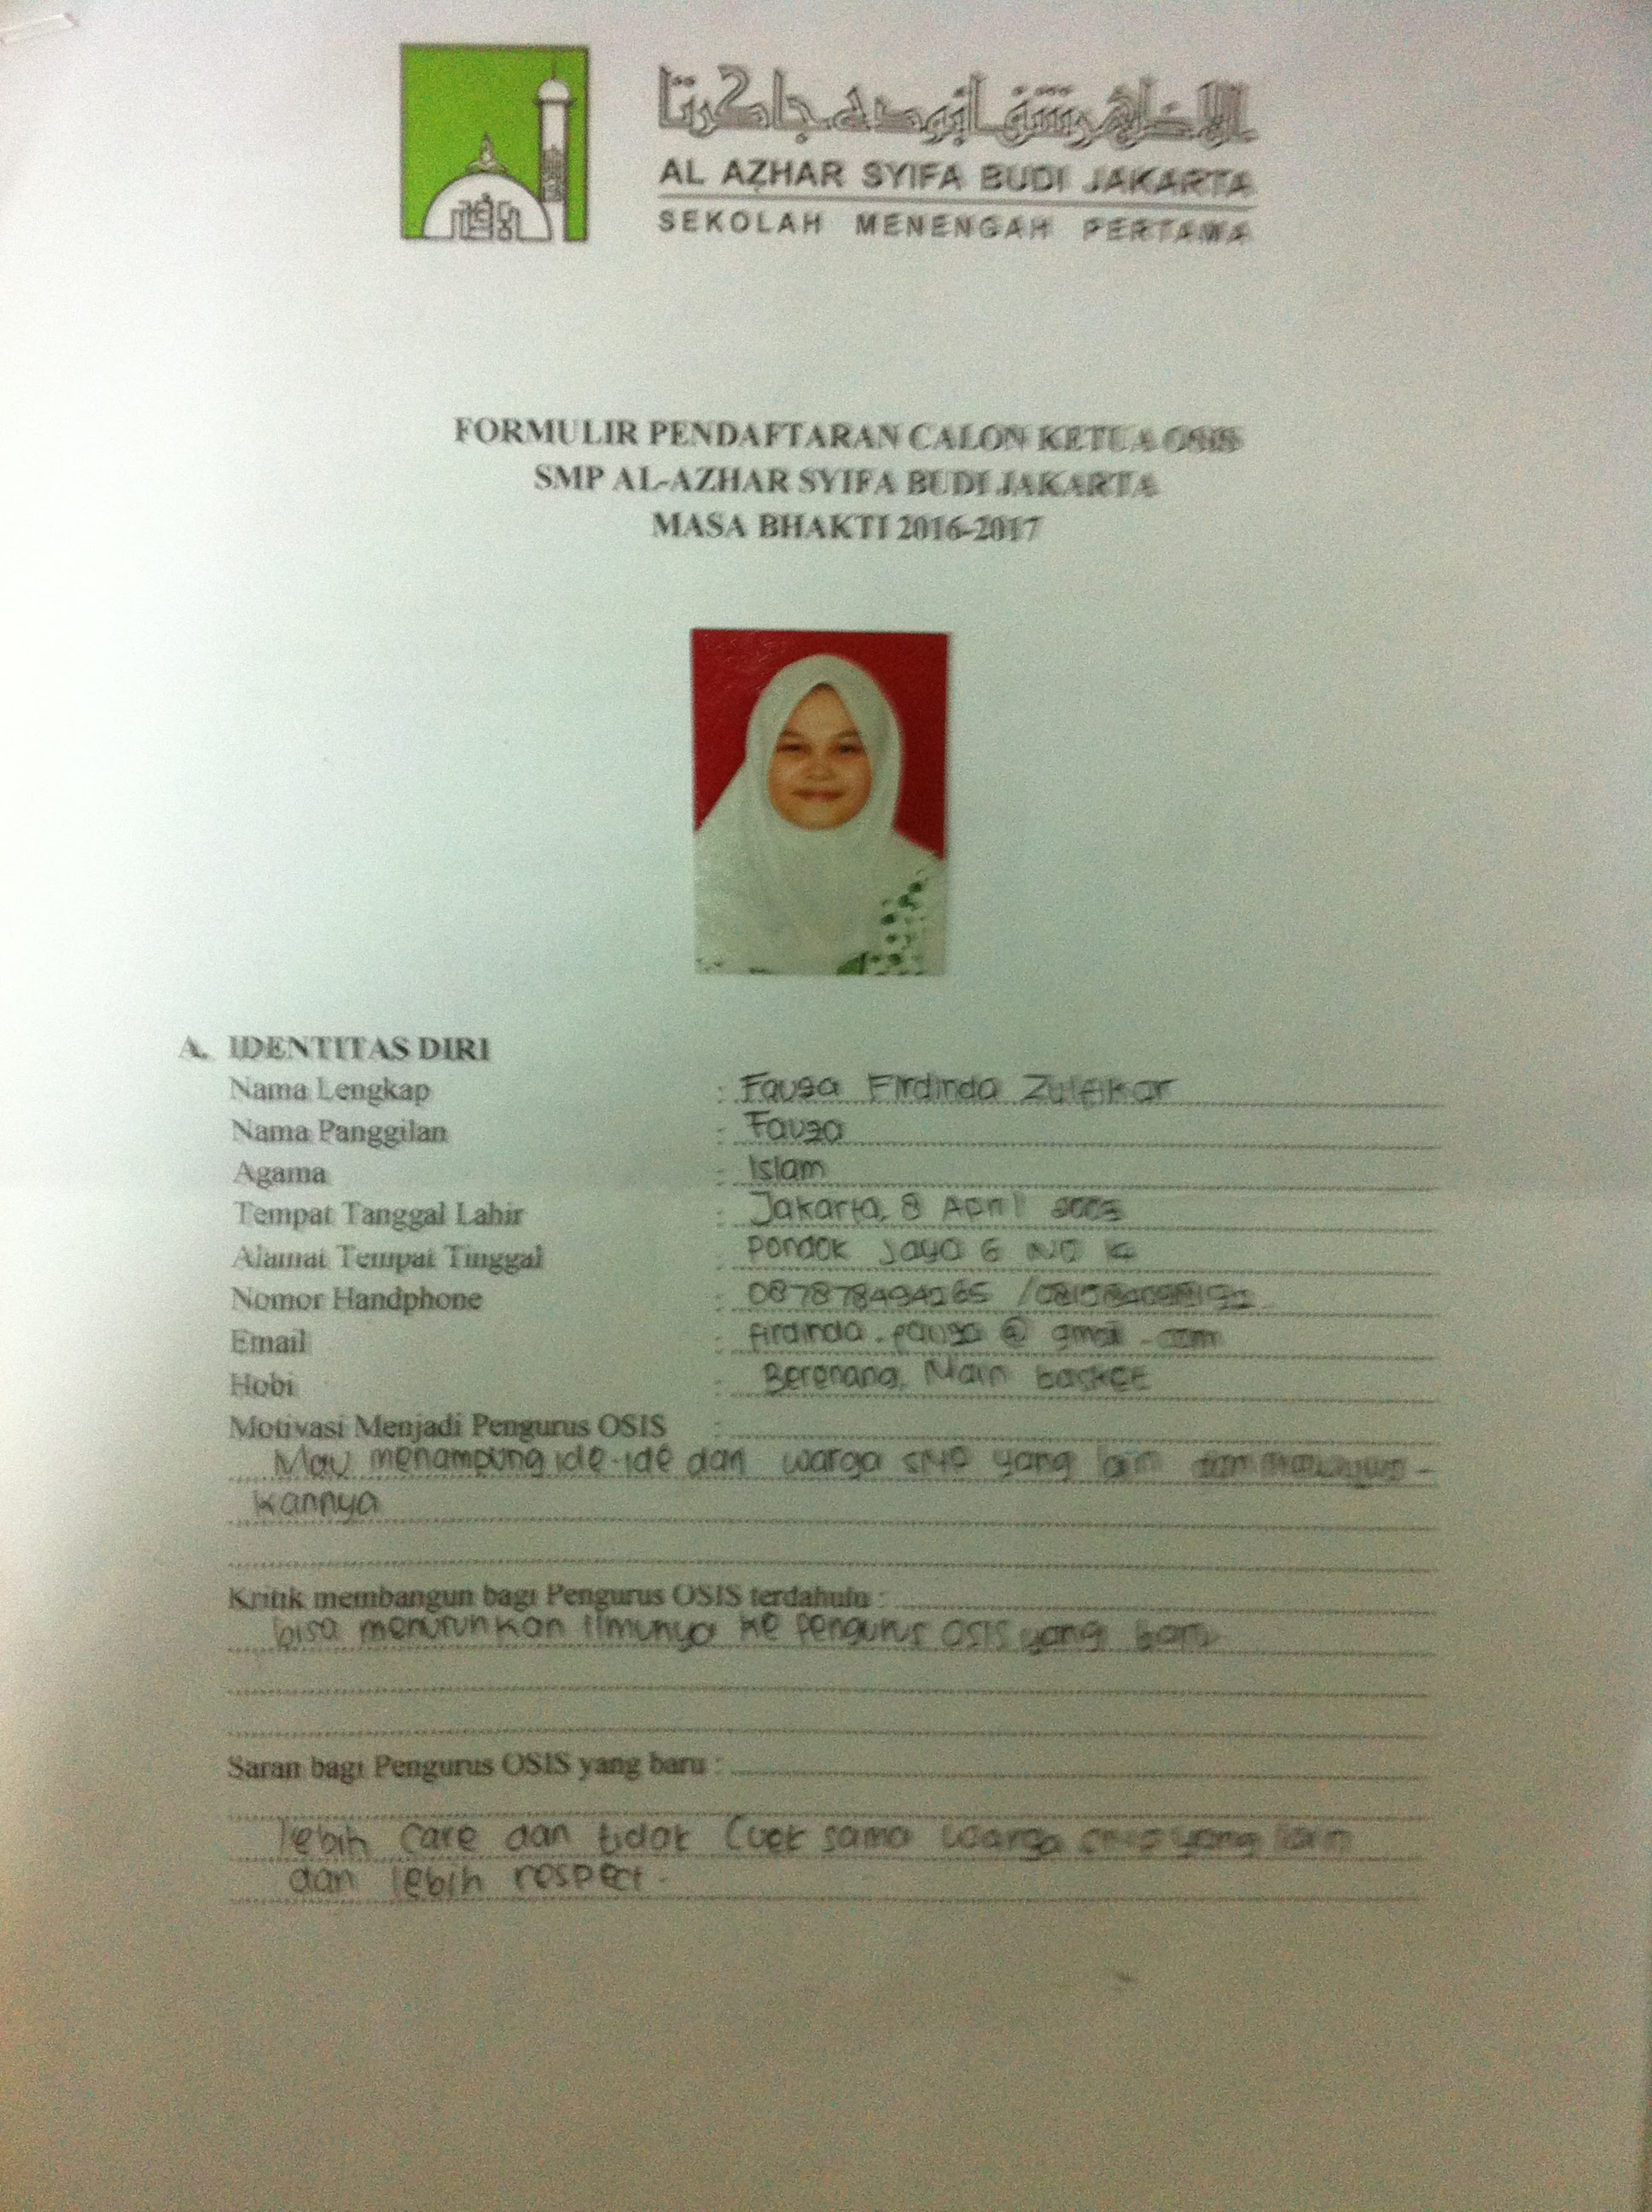 AL AZHAR SYIFA BUDI JAKARTA
SEKOLAH MENENGAH PERTAMA
FORMULIR PENDAFTARAN CALON KETUA OSIS
SMP AL-AZHAR SYIFA BUDI JAKARTA
MASA BHAKTI 2016-2017
A. IDENTITAS DIRI
Nama Lengkap : Fauza Firdinda Zulfikar
Nama Panggilan : Fauza
Agama : Islam
Tempat Tanggal Lahir : Jakarta, 8 April 2003
Alamat Tempat Tinggal : Pondok Jaya 6 NO
Nomor Handphone : 087878494265 /
Email : firdinda.fauza@gmail.com
Hobi : Berenang, Main basket
Motivasi Menjadi Pengurus OSIS :
Mau menampung ide-ide dari warga SMP yang lain
kannya
Kritik membangun bagi Pengurus OSIS terdahulu :
bisa menurunkan ilmunya ke pengurus OSIS yang baru
Saran bagi Pengurus OSIS yang baru :
lebih care dan tidak cuek sama warga SMP yang lain
dan lebih respect.